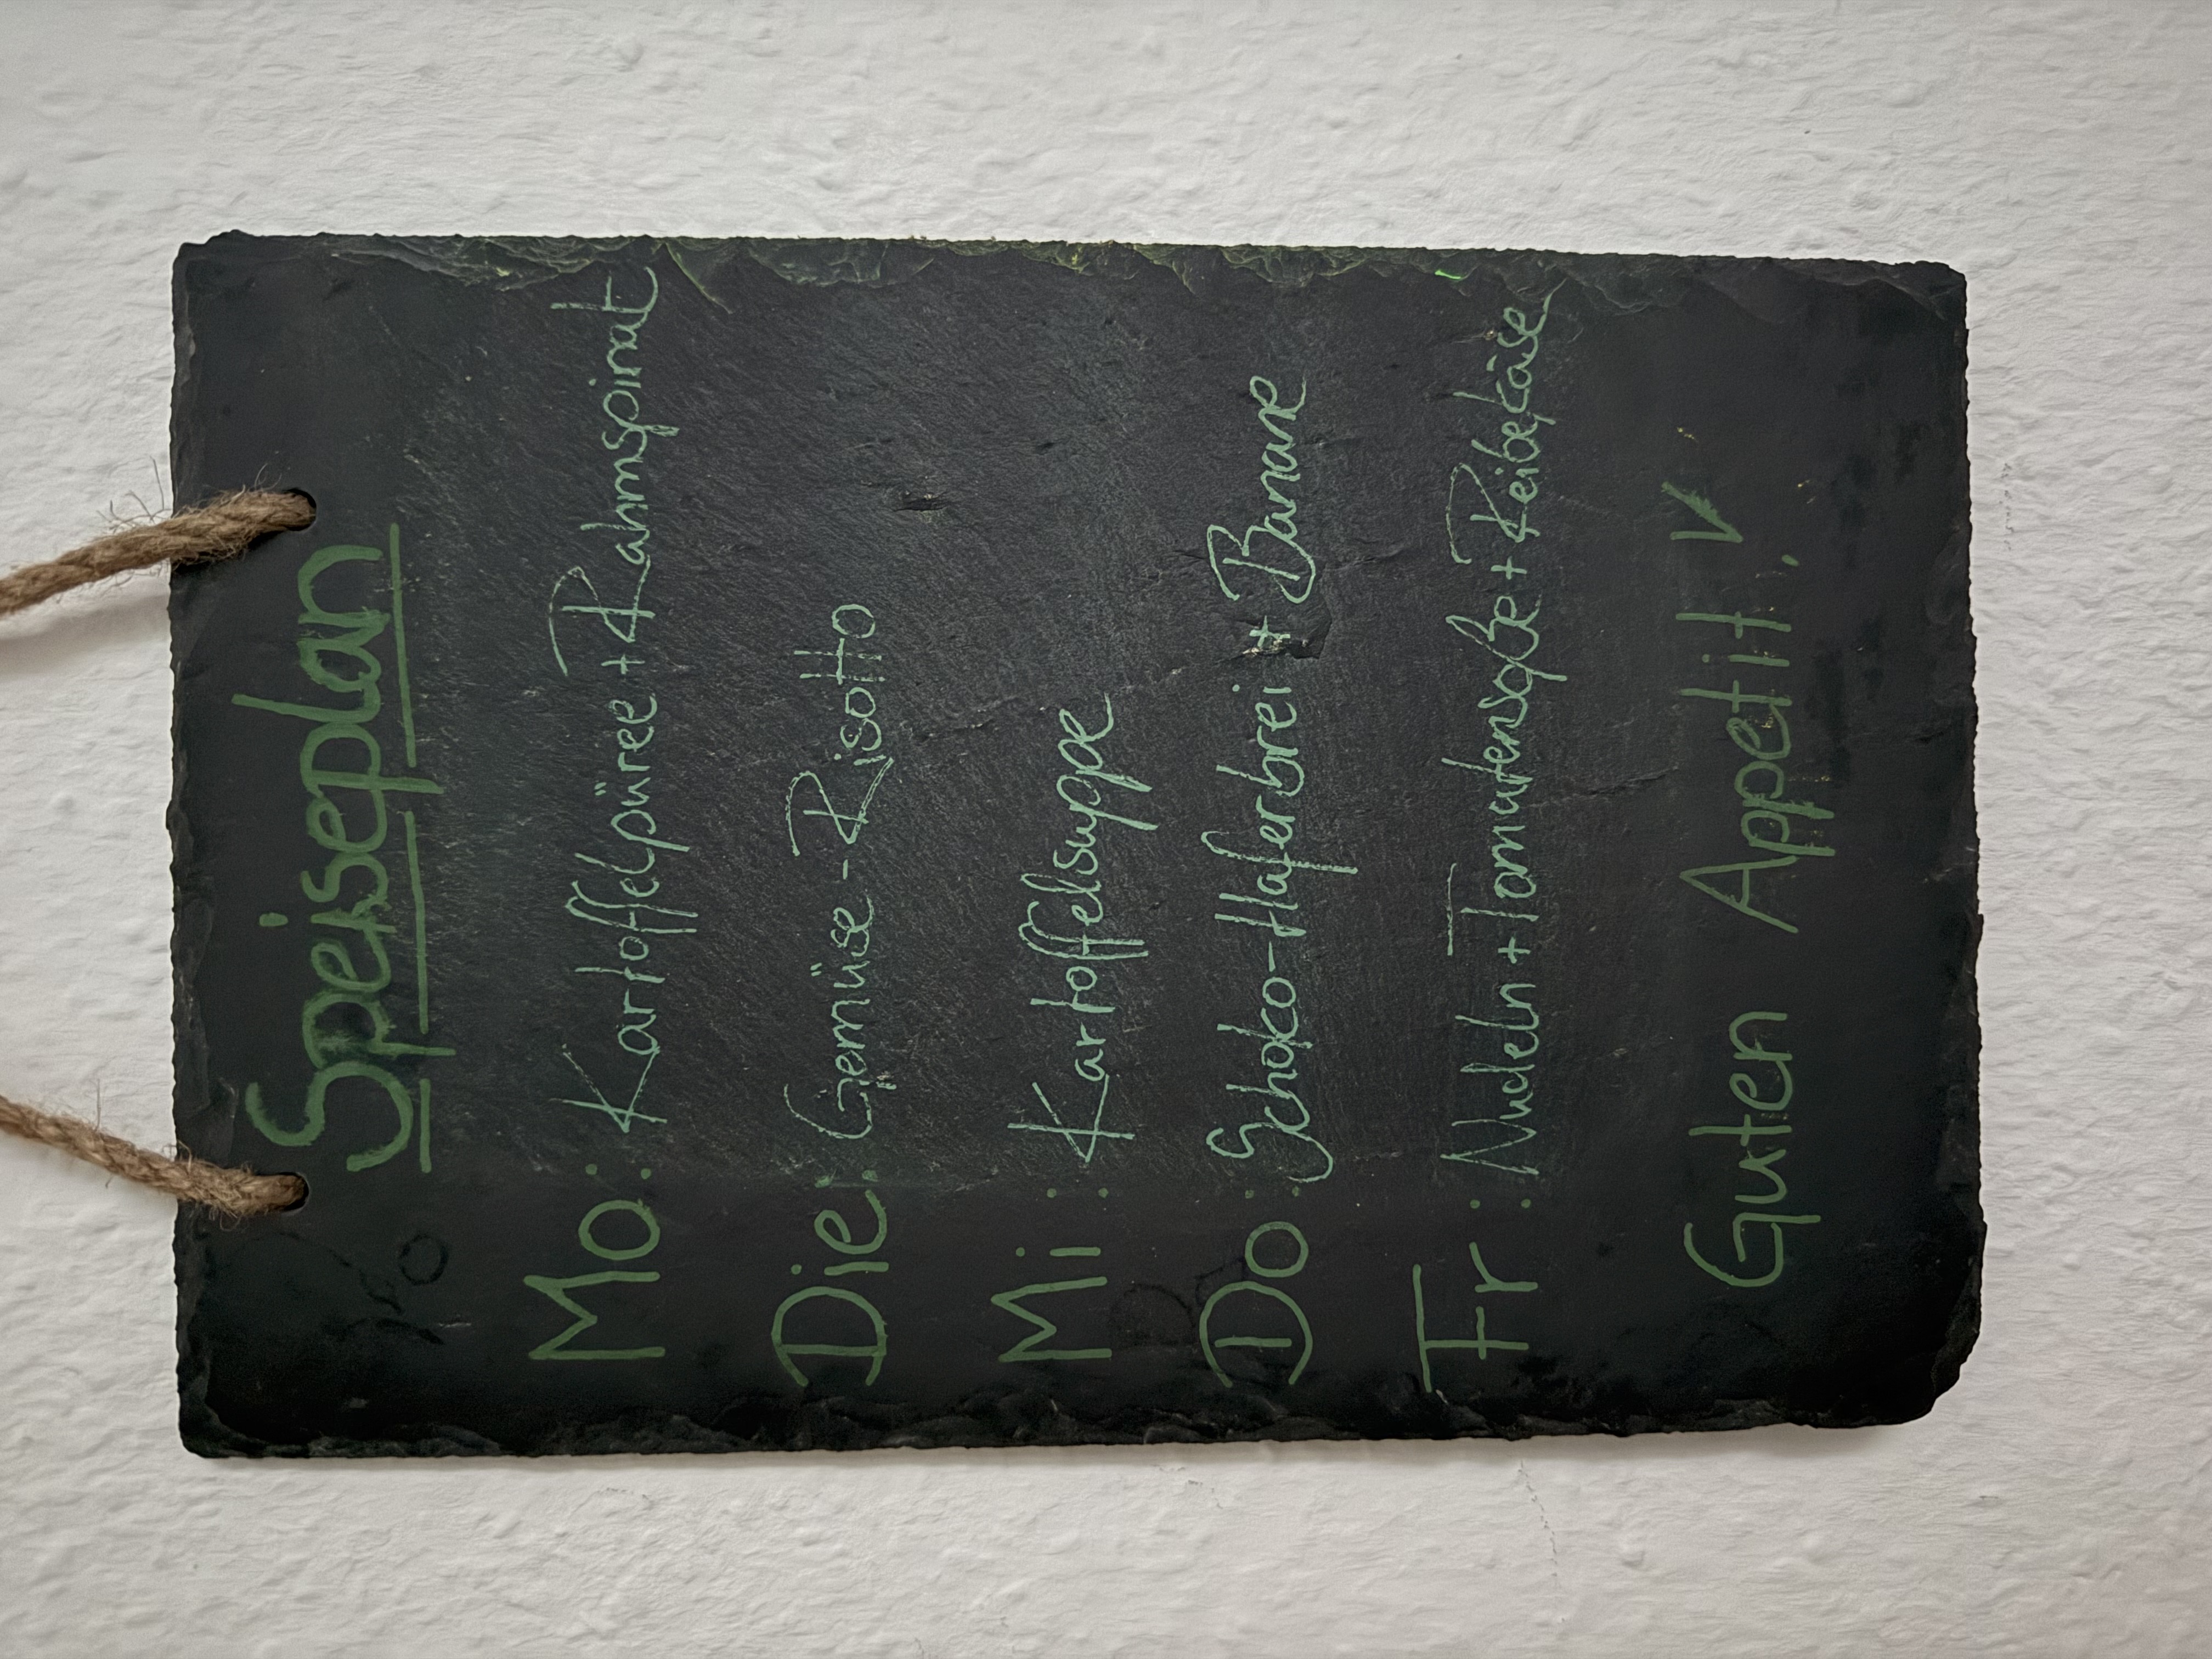 Speiseplan
Mo: Kartoffelpüree + Rahmspinat
Die: Gemüse-Risotto
Mi: Kartoffelsuppe
Do: Schoko-Haferbrei + Banane
Fr: Nudeln + Tomatensoße + Reibekäse
Guten Appetit!